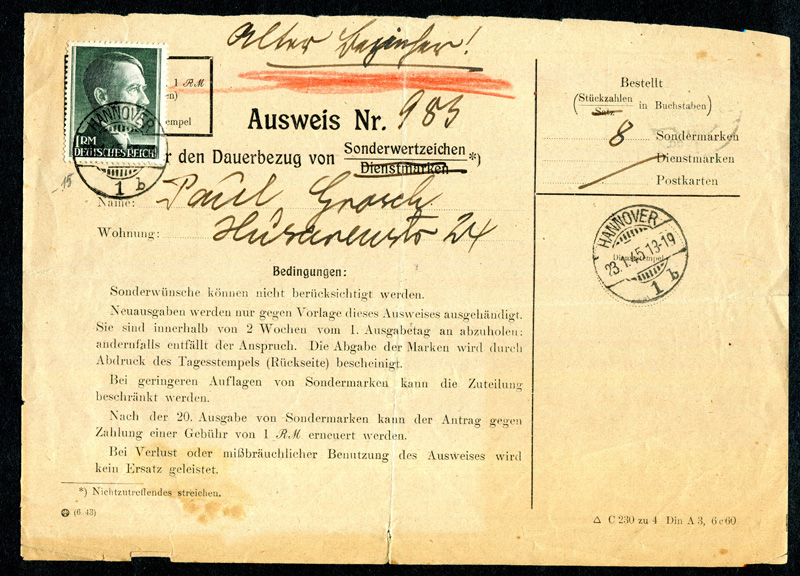 Alter Bezieher!
1 RM
en)
tempel
HANNOVER
1 b
1 RM
DEUTSCHES REICH
Ausweis Nr. 983
r den Dauerbezug von Sonderwertzeichen
Dienstmarken *)
-15
Name: Paul Grosch
Wohnung: Husarenstr 24
Bedingungen:
Sonderwünsche können nicht berücksichtigt werden.
Neuausgaben werden nur gegen Vorlage dieses Ausweises ausgehändigt.
Sie sind innerhalb von 2 Wochen vom 1. Ausgabetag an abzuholen;
andernfalls entfällt der Anspruch. Die Abgabe der Marken wird durch
Abdruck des Tagesstempels (Rückseite) bescheinigt.
Bei geringeren Auflagen von Sondermarken kann die Zuteilung
beschränkt werden.
Nach der 20. Ausgabe von Sondermarken kann der Antrag gegen
Zahlung einer Gebühr von 1 RM erneuert werden.
Bei Verlust oder mißbräuchlicher Benutzung des Ausweises wird
kein Ersatz geleistet.
*) Nichtzutreffendes streichen.
(6. 43)
Bestellt
(Stückzahlen
Satz in Buchstaben)
8 Sondermarken
Dienstmarken
Postkarten
HANNOVER
Dienststempel
23.1.45.13-19
1 b
C 230 zu 4 Din A 3, 6 c 60